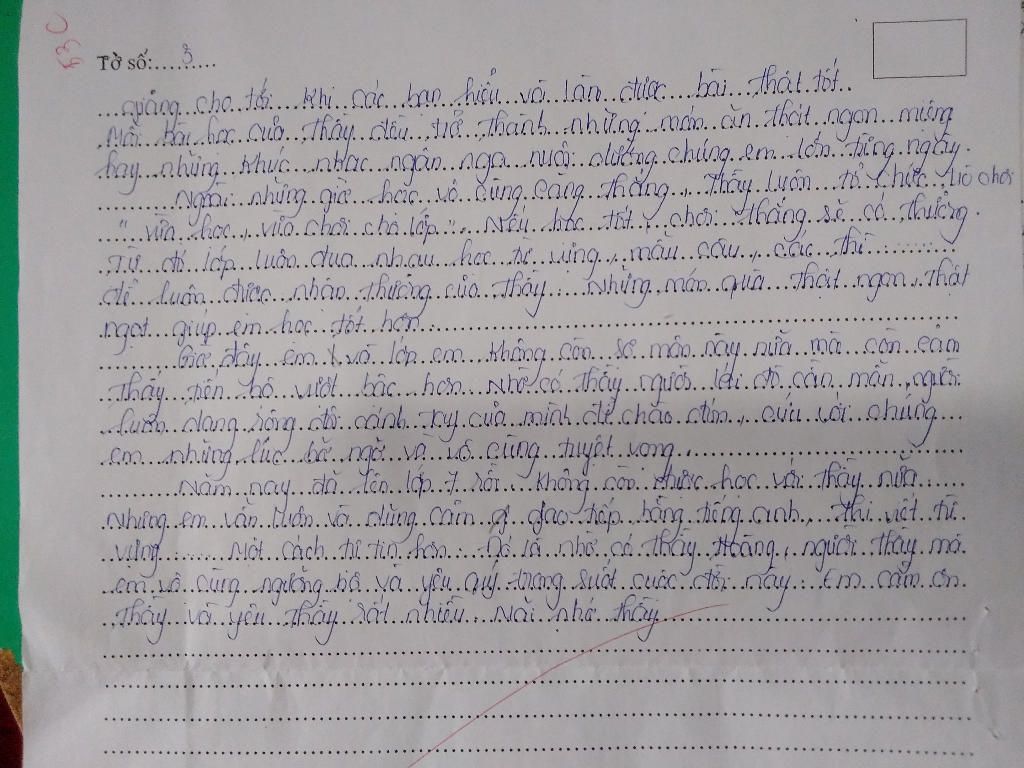 33C
Tờ số:.....3.....
giảng cho tới khi các bạn hiểu và làm được bài thật tốt
Mỗi bài học của thầy đều trở thành những món ăn thật ngon miệng
hay những khúc nhạc ngân nga nuôi dưỡng chúng em lớn từng ngày.
Ngoài những giờ học vô cùng căng thẳng, Thầy luôn tổ chức trò chơi
"vừa học, vừa chơi cho lớp". Nếu học tốt, chơi thắng sẽ có thưởng.
Từ đó lớp luôn đua nhau học từ vựng, mẫu câu, các thì
để luôn được nhận thưởng của thầy. Những món quà thật ngon, thật
ngọt giúp em học tốt hơn
Giờ đây em và lớp em không còn sợ môn này nữa mà còn cảm
thấy tiến bộ vượt bậc hơn. Nhờ có thầy người lái đò cần mẫn, người
luôn dang rộng đôi cánh tay của mình để chào đón, cứu với chúng
em những lúc bỡ ngỡ và vô cùng tuyệt vọng.
Năm nay đã lên lớp 7 rồi. Không còn được học với thầy nữa
nhưng em vẫn luôn và dũng cảm giao tiếp bằng tiếng anh, thi viết từ
vựng... Một cách tự tin hơn. Đó là nhờ có thầy Hoàng, người thầy mà
em vô cùng ngưỡng bộ và yêu quý trong suốt cuộc đời này. Em cảm ơn
thầy và yêu thầy rất nhiều. Mãi nhớ thầy